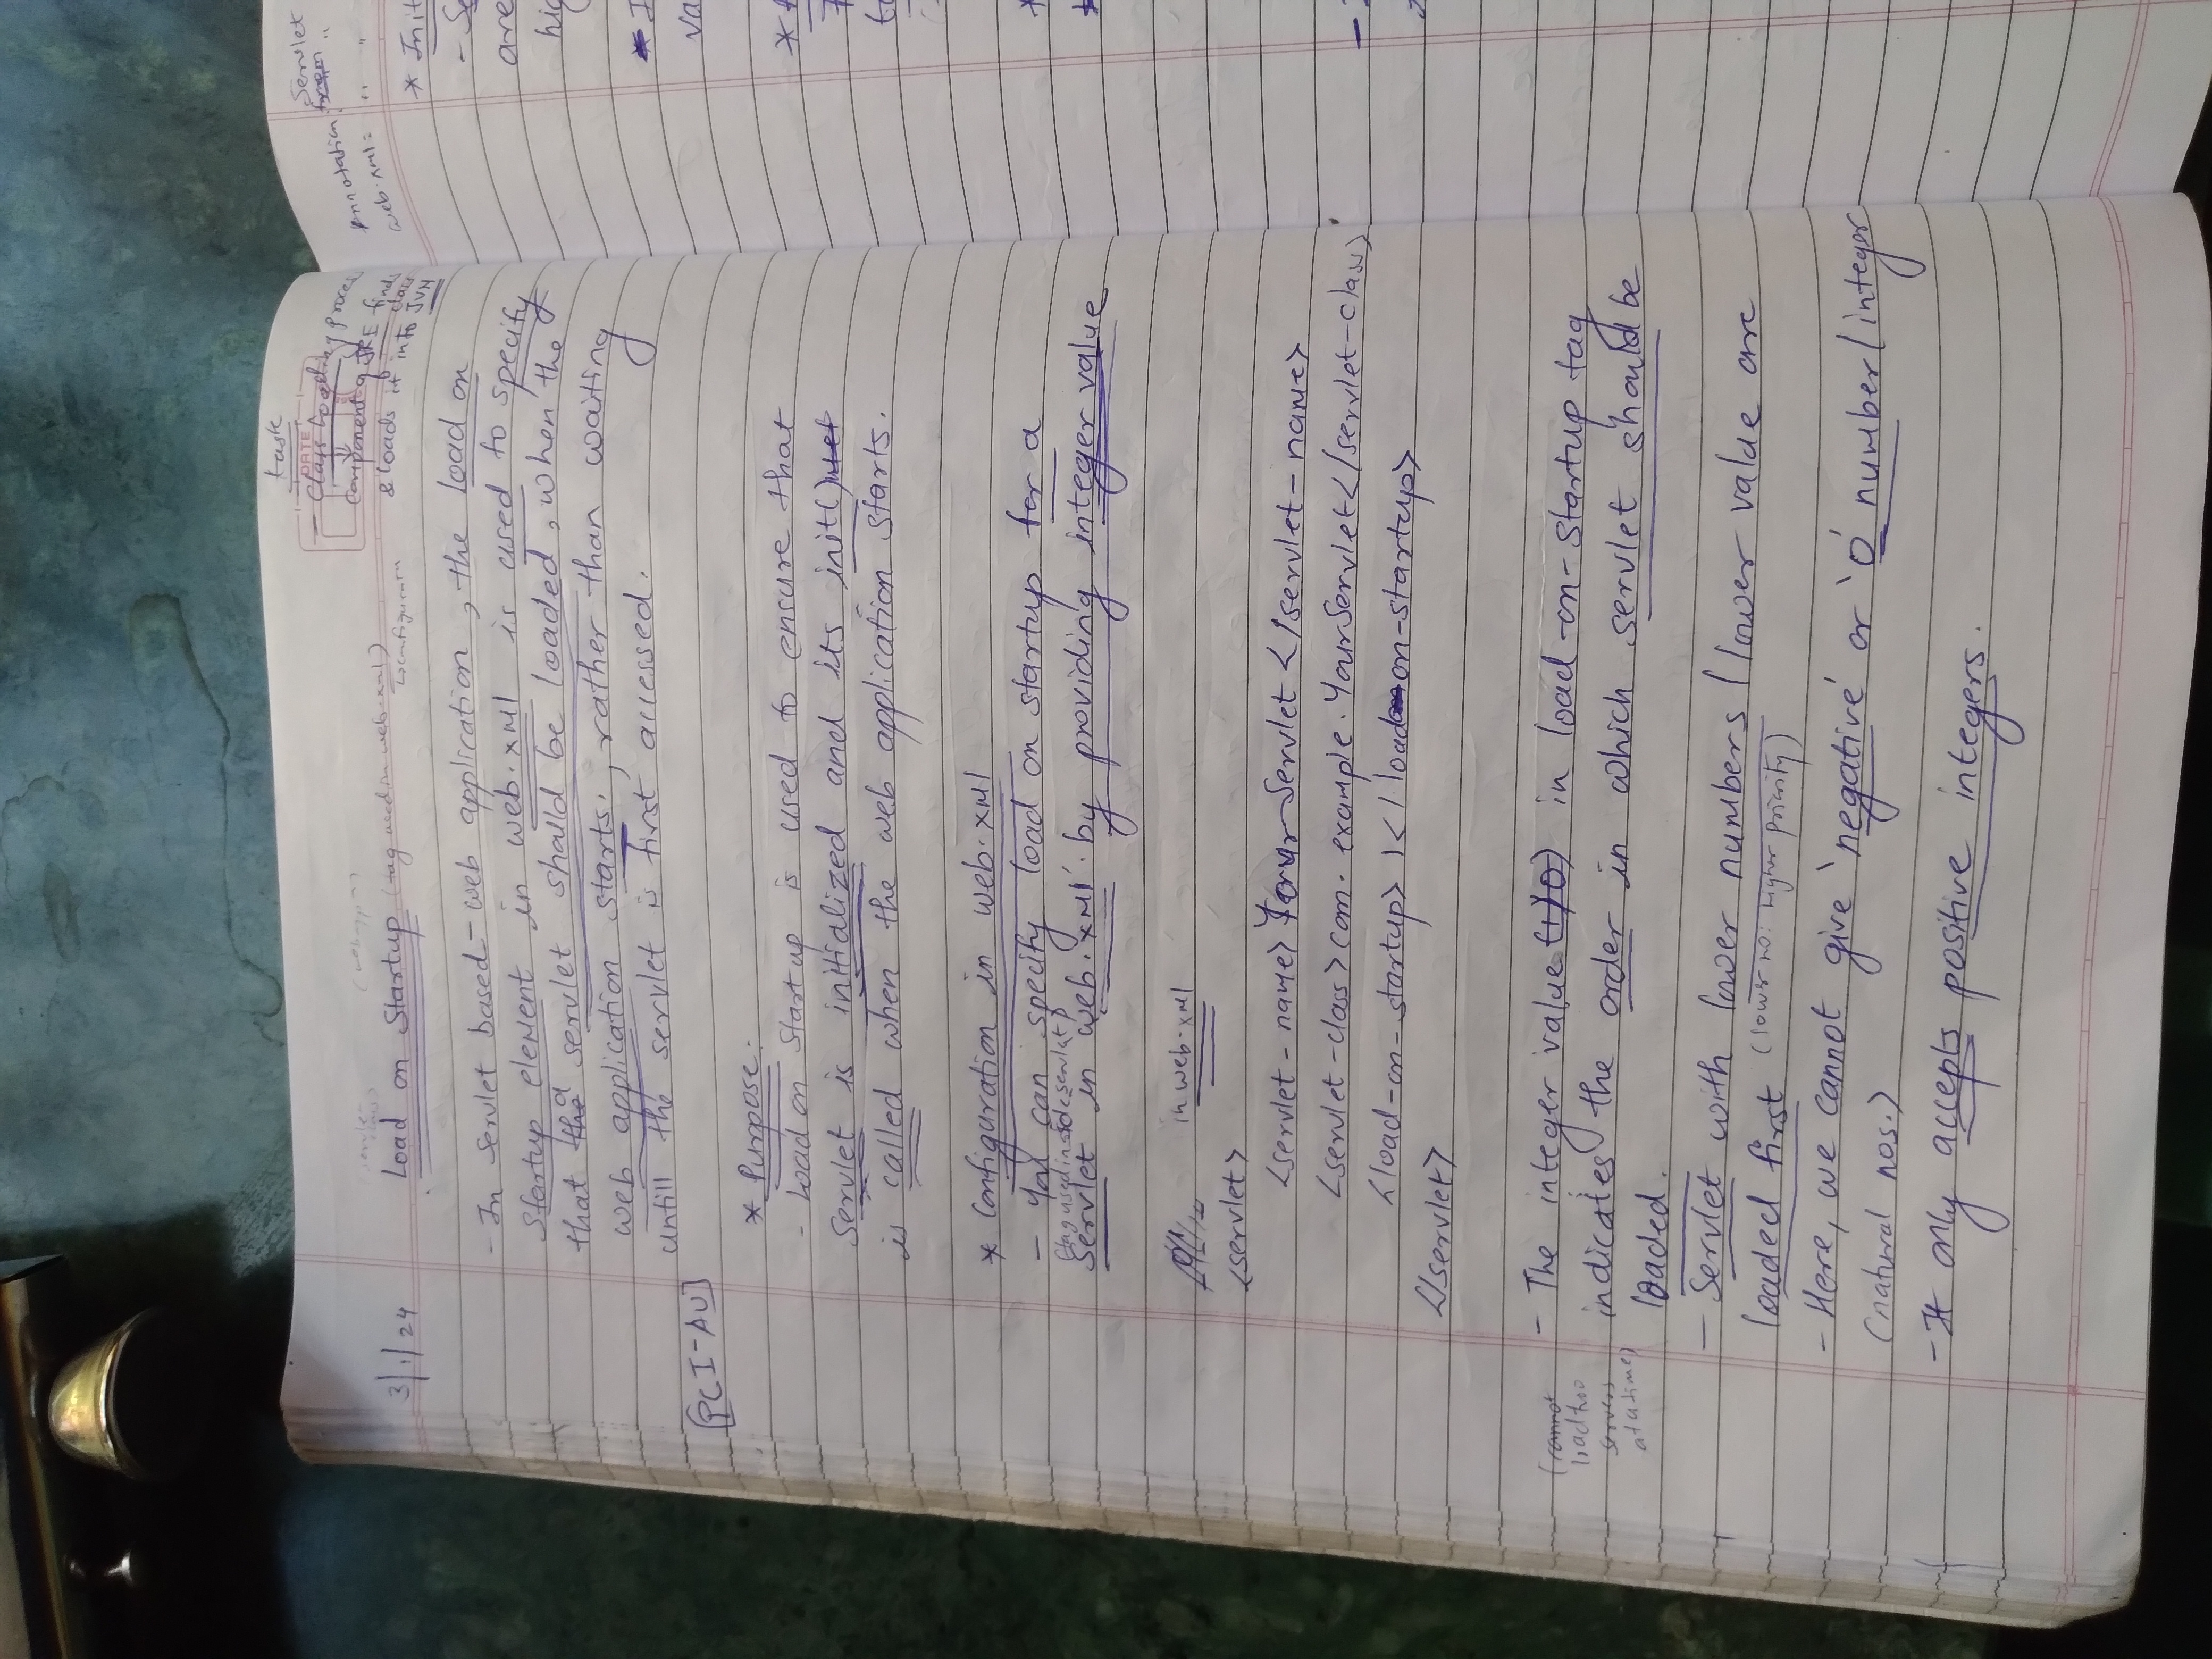 task
DATE
- Class Loading process
Component of JRE finds class
& loads it into JVM
3/1/24
Load on Startup (tag used in web.xml)
- In Servlet based-web application, the load on
startup element in web.xml is used to specify
that a servlet should be loaded, when the
web application starts, rather than waiting
untill the servlet is first accessed.
[PCI-AU]
* Purpose:
- Load on Startup is used to ensure that
Servlet is initialized and its init()
is called when the web application starts.
* Configuration in web.xml
- You can specify load on startup for a
(tag used inside servlet)
servlet in web.xml by providing integer value
in web.xml
<servlet>
<servlet-name> Your Servlet </servlet-name>
<servlet-class>com.example.YourServlet</servlet-class>
<load-on-startup>1</load-on-startup>
</servlet>
- The integer value (+)/0) in load-on-startup tag
(cannot
load two
servers
at a time)
indicates the order in which servlet should be
loaded.
- Servlet with lower numbers / lower value are
loaded first (lower no: higher priority)
- Here, we cannot give 'negative' or '0' number/integer
(natural nos.)
- It only accepts positive integers.
Servlet
Annotation:
web.xml: " "
* Init
- Se
are
hig
* I
va